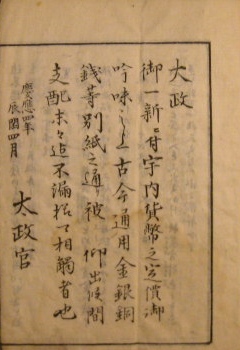 大政
御一新ニ付宇内貨幣之定價御
吟味之上古今通用金銀銅
錢等別紙之通り被 仰出候間
支配末々迄不漏様可相觸者也
慶應四年
辰閏四月
太政官